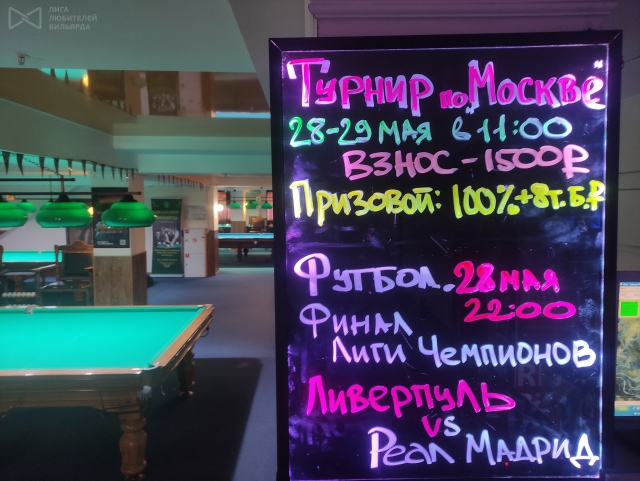 ЛИГА
ЛЮБИТЕЛЕЙ
БИЛЬЯРДА
Турнир по „Москве“
28-29 мая в 11:00
Взнос - 1500Р
Призовой: 100%+8т.Б.Р
Футбол. 28 мая
22:00
Финал
Лиги Чемпионов
Ливерпуль
vs
Реал Мадрид